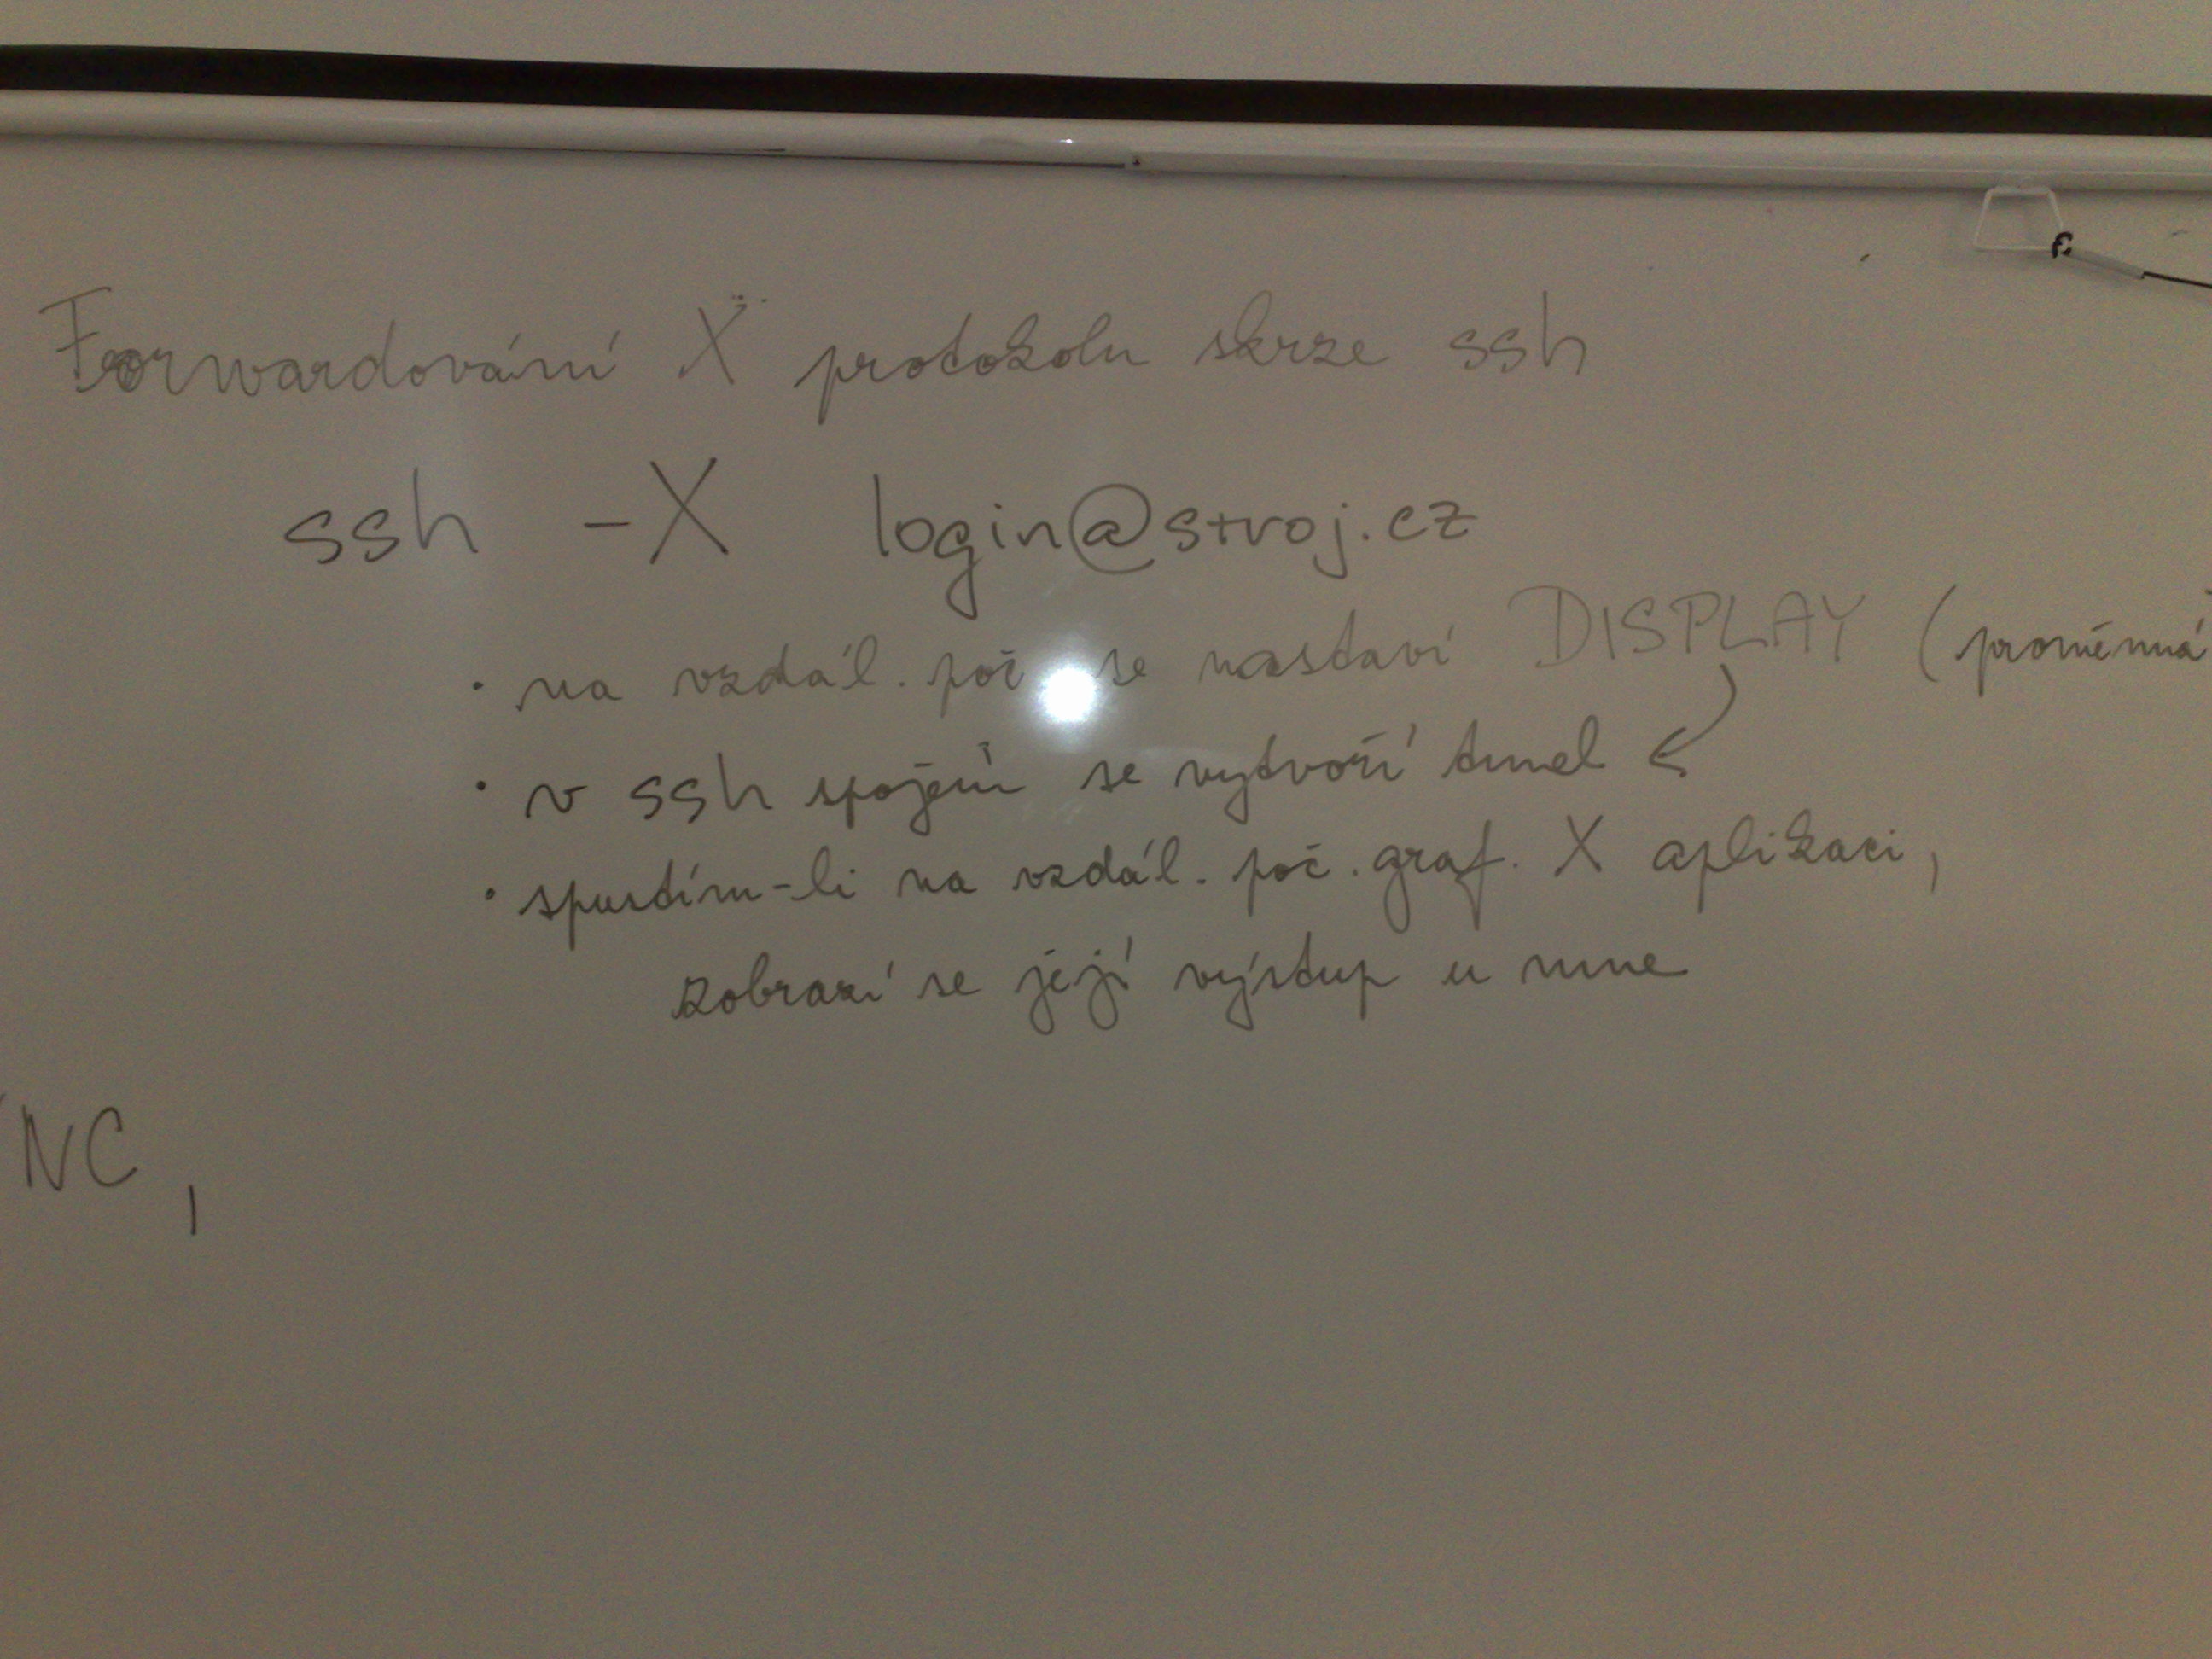 Forwardování X protokolu skrze ssh
ssh -X login@stroj.cz
• na vzdál. poč se nastaví DISPLAY (proměnná
• v ssh spojení se vytvoří tunel
• spustím-li na vzdál. poč. graf. X aplikaci,
zobrazí se její výstup u mne
NC,